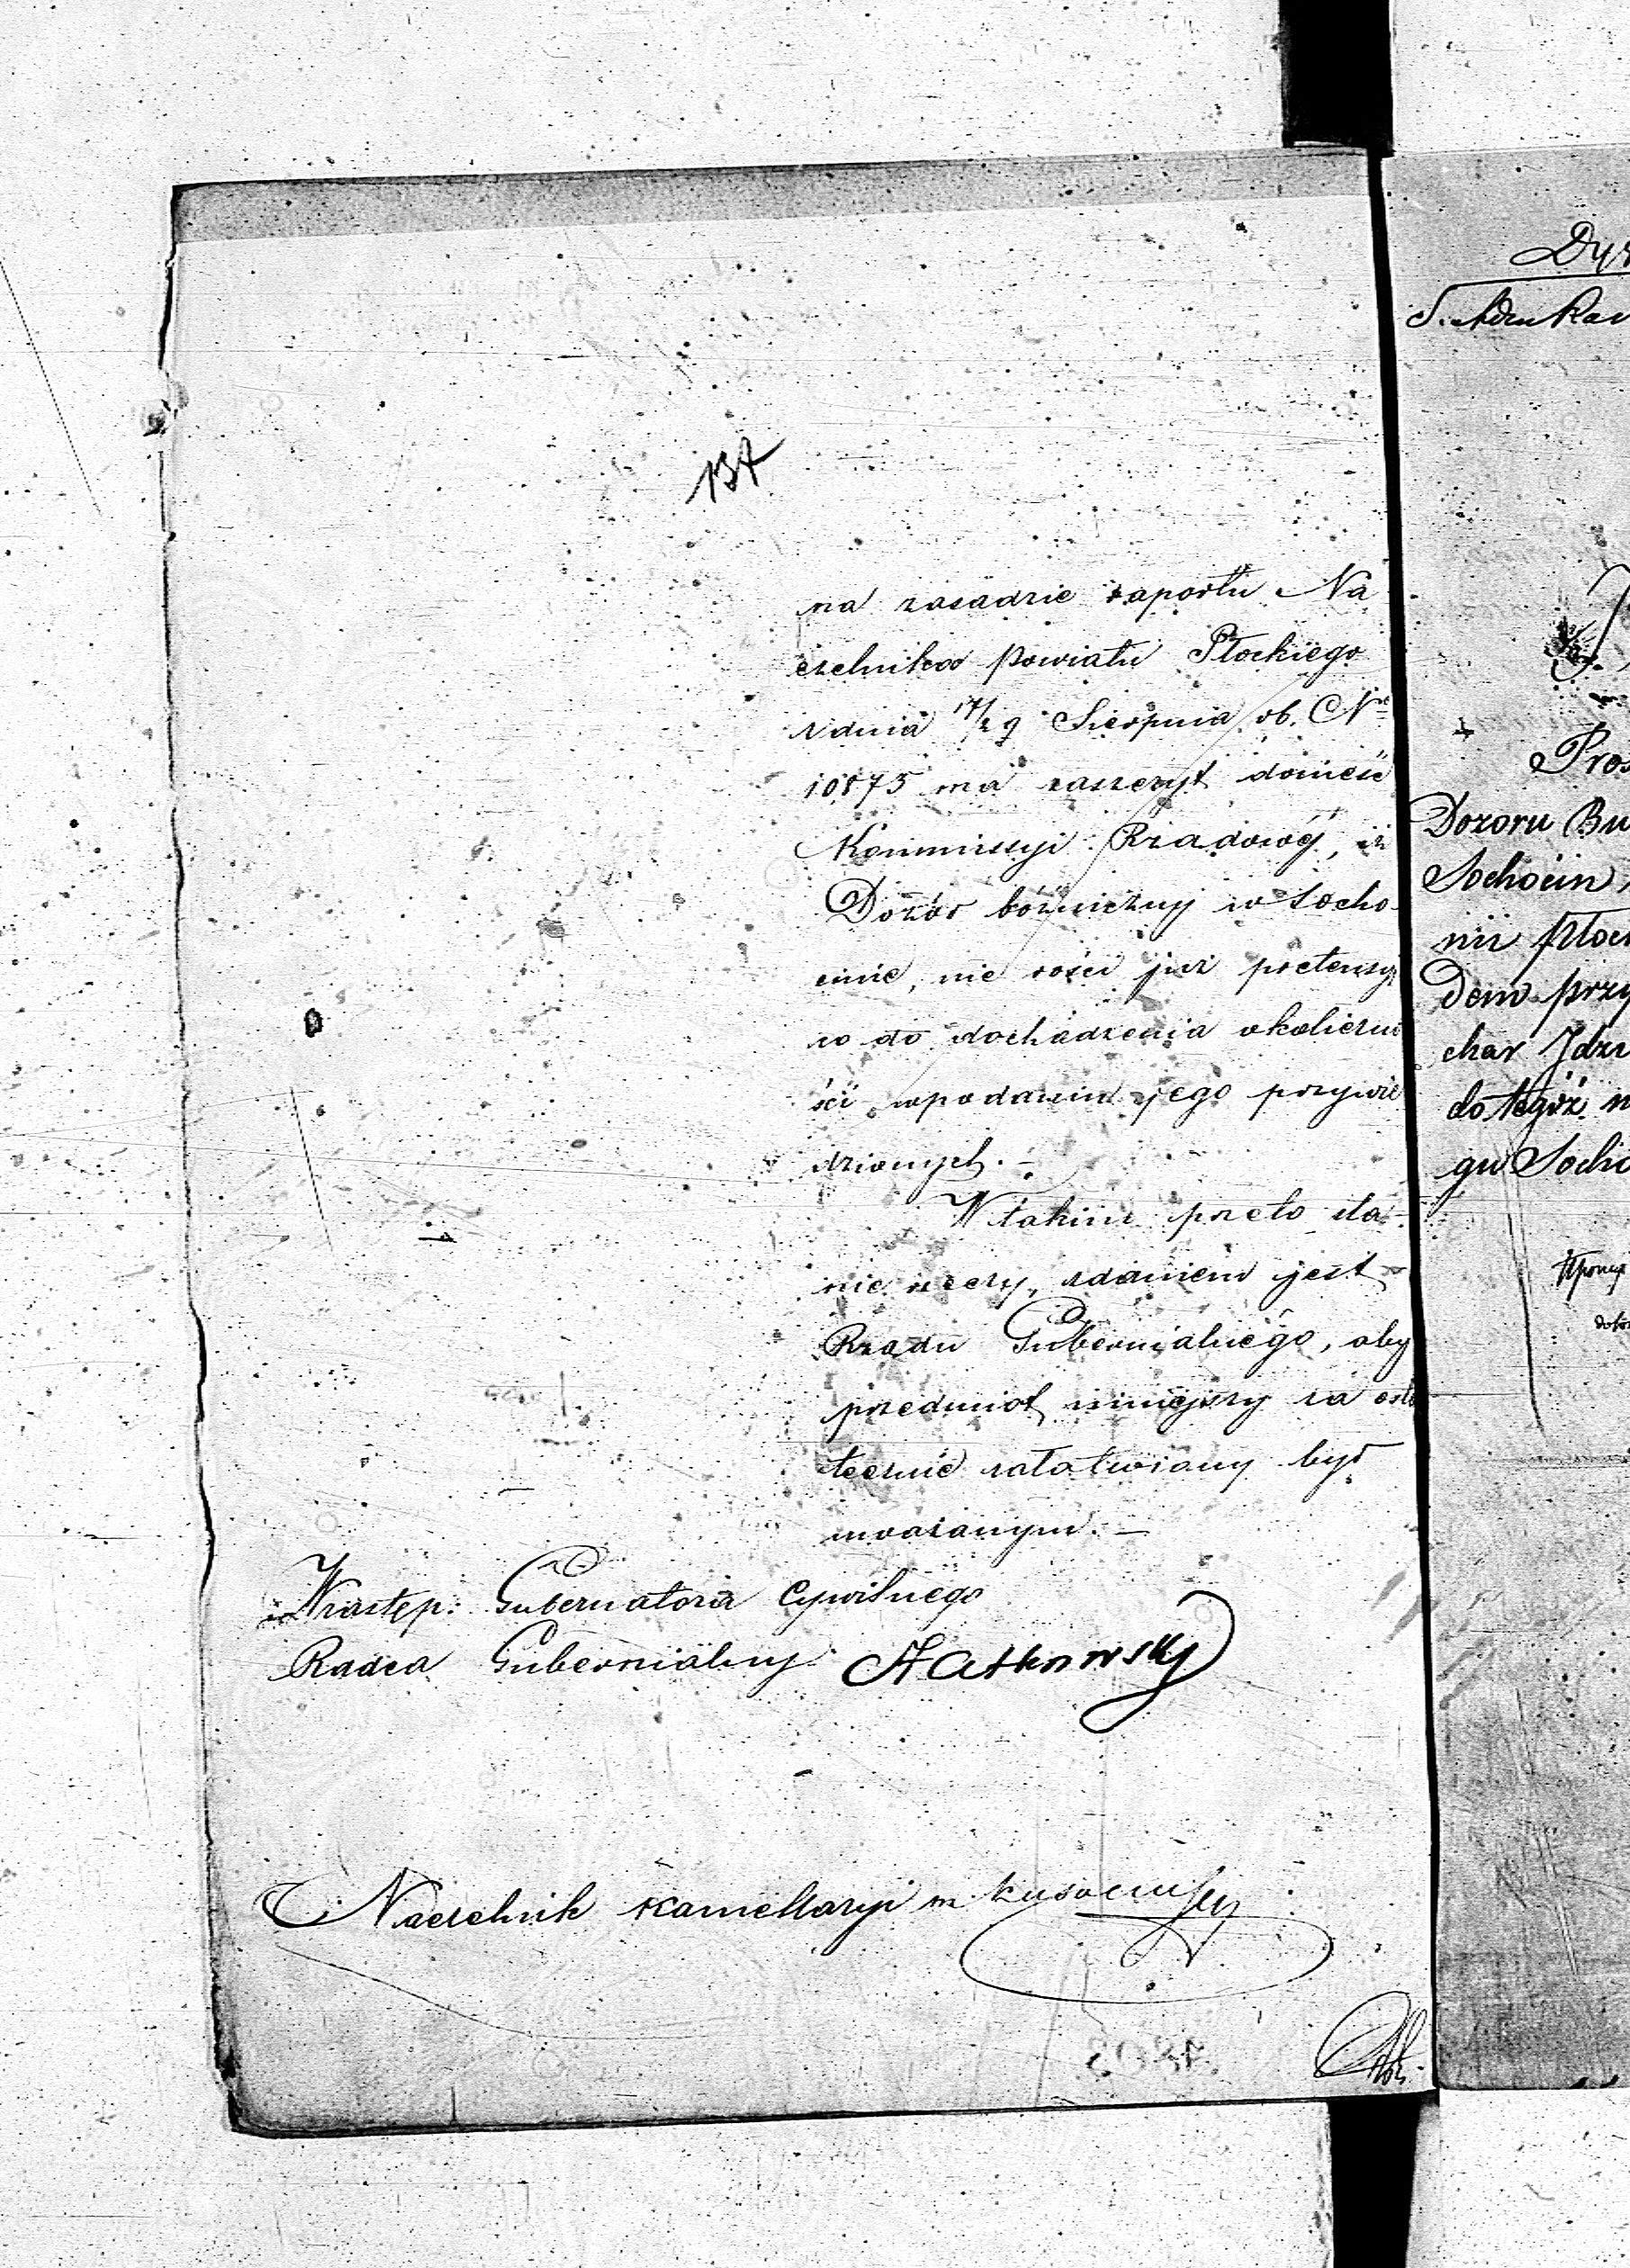 137
na zasadzie raportu Na
czelnika powiatu Płockiego
z dnia 17/29 Sierpnia rb. Nr
10875 ma zaszczyt donieść
Kommissyi Rządowéj, iż
Dozór bóżniczny w Socho
cinie, nie rości już pretensyi
co do dochodzenia okoliczno
ści w podaniu jego przywie
dzionych. —
W takim przeto sta-
nie rzeczy, zdaniem jest
Rządu Gubernialnego, aby
przedmiot niniejszy za osta
tecznie załatwiany był
uważanym. —
W zastęp: Gubernatora Cywilnego
Radca Gubernialny
Naczelnik Kancellaryi
Dyr
Pros
Dozoru Bu
Sochocin,
nii Płoc
Dem przy
char Jdzi
do tegoż n
gu Socho